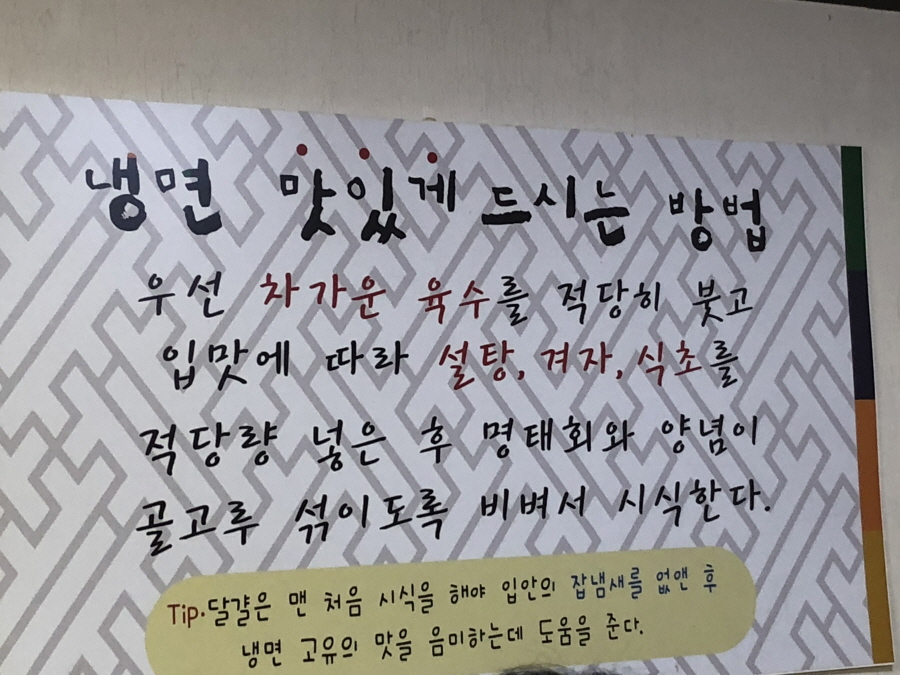 냉면 맛있게 드시는 방법
우선 차가운 육수를 적당히 붓고
입맛에 따라 설탕, 겨자, 식초를
적당량 넣은 후 명태회와 양념이
골고루 섞이도록 비벼서 시식한다.
Tip·달걀은 맨 처음 시식을 해야 입안의 잡냄새를 없앤 후
냉면 고유의 맛을 음미하는데 도움을 준다.